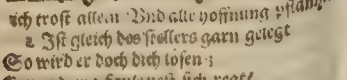 ich troſt allein Vnd alle hoffnung
2 Iſt gleich des ſtellers garn gelegt
So wird er doch dich loͤſen;
ſich regt